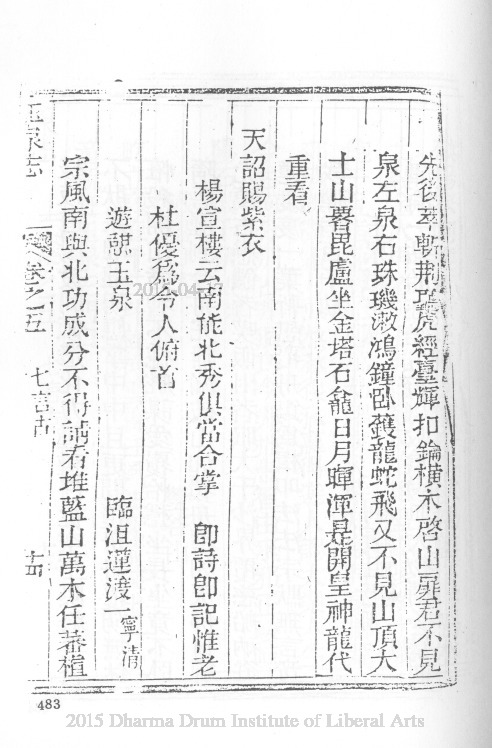 先後萃斬荆驅虎經臺輝扣鑰橫木啓山扉君不見
泉左泉右珠璣漱鴻鐘卧鑊龍蛇飛又不見山頂大
士山署毘盧坐金塔石龕日月暉渾是開皇神龍代
重看
天詔賜紫衣
楊宣樓云南能北秀俱當合掌 即詩即記惟老
杜優爲令人俯首
遊憇玉泉 臨沮蓮渡一 寧清
宗風南與北功成分不得請看堆藍山萬木任蕃植
玉泉志 卷之五 七言古
483
2015 Dharma Drum Institute of Liberal Arts